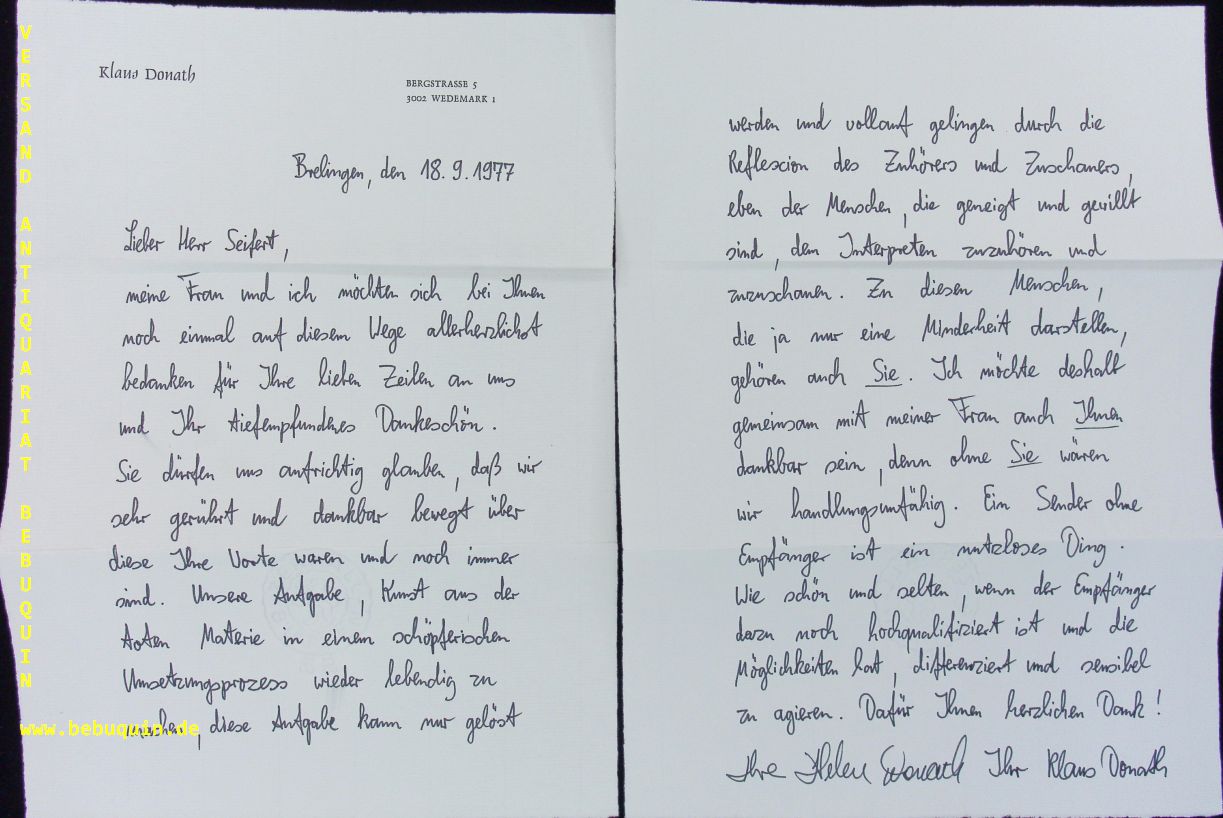 VERSAND ANTIQUARIAT BEBUQUIN
Klaus Donath
BERGSTRASSE 5
3002 WEDEMARK 1
Brelingen, den 18.9.1977
Lieber Herr Seifert,
meine Frau und ich möchten sich bei Ihnen
noch einmal auf diesem Wege allerherzlichst
bedanken für Ihre lieben Zeilen an uns
und Ihr tiefempfundenes Dankeschön.
Sie dürfen uns aufrichtig glauben, daß wir
sehr gerührt und dankbar bewegt über
diese Ihre Worte waren und noch immer
sind. Unsere Aufgabe, Kunst aus der
toten Materie in einem schöpferischen
Umsetzungsprozess wieder lebendig zu
machen, diese Aufgabe kann nur gelöst
www.bebuquin.de
werden und vollauf gelingen durch die
Reflexcion des Zuhörers und Zuschauers,
eben der Menschen, die geneigt und gewillt
sind, dem Interpreten zuzuhören und
zuzuschauen. Zu diesen Menschen,
die ja nur eine Minderheit darstellen,
gehören auch Sie. Ich möchte deshalb
gemeinsam mit meiner Frau auch Ihnen
dankbar sein, denn ohne Sie wären
wir handlungsunfähig. Ein Sender ohne
Empfänger ist ein nutzloses Ding.
Wie schön und selten, wenn der Empfänger
dazu noch hochqualifiziert ist und die
Möglichkeiten hat, differenziert und sensibel
zu agieren. Dafür Ihnen herzlichen Dank!
Ihre Helen Donath Ihr Klaus Donath